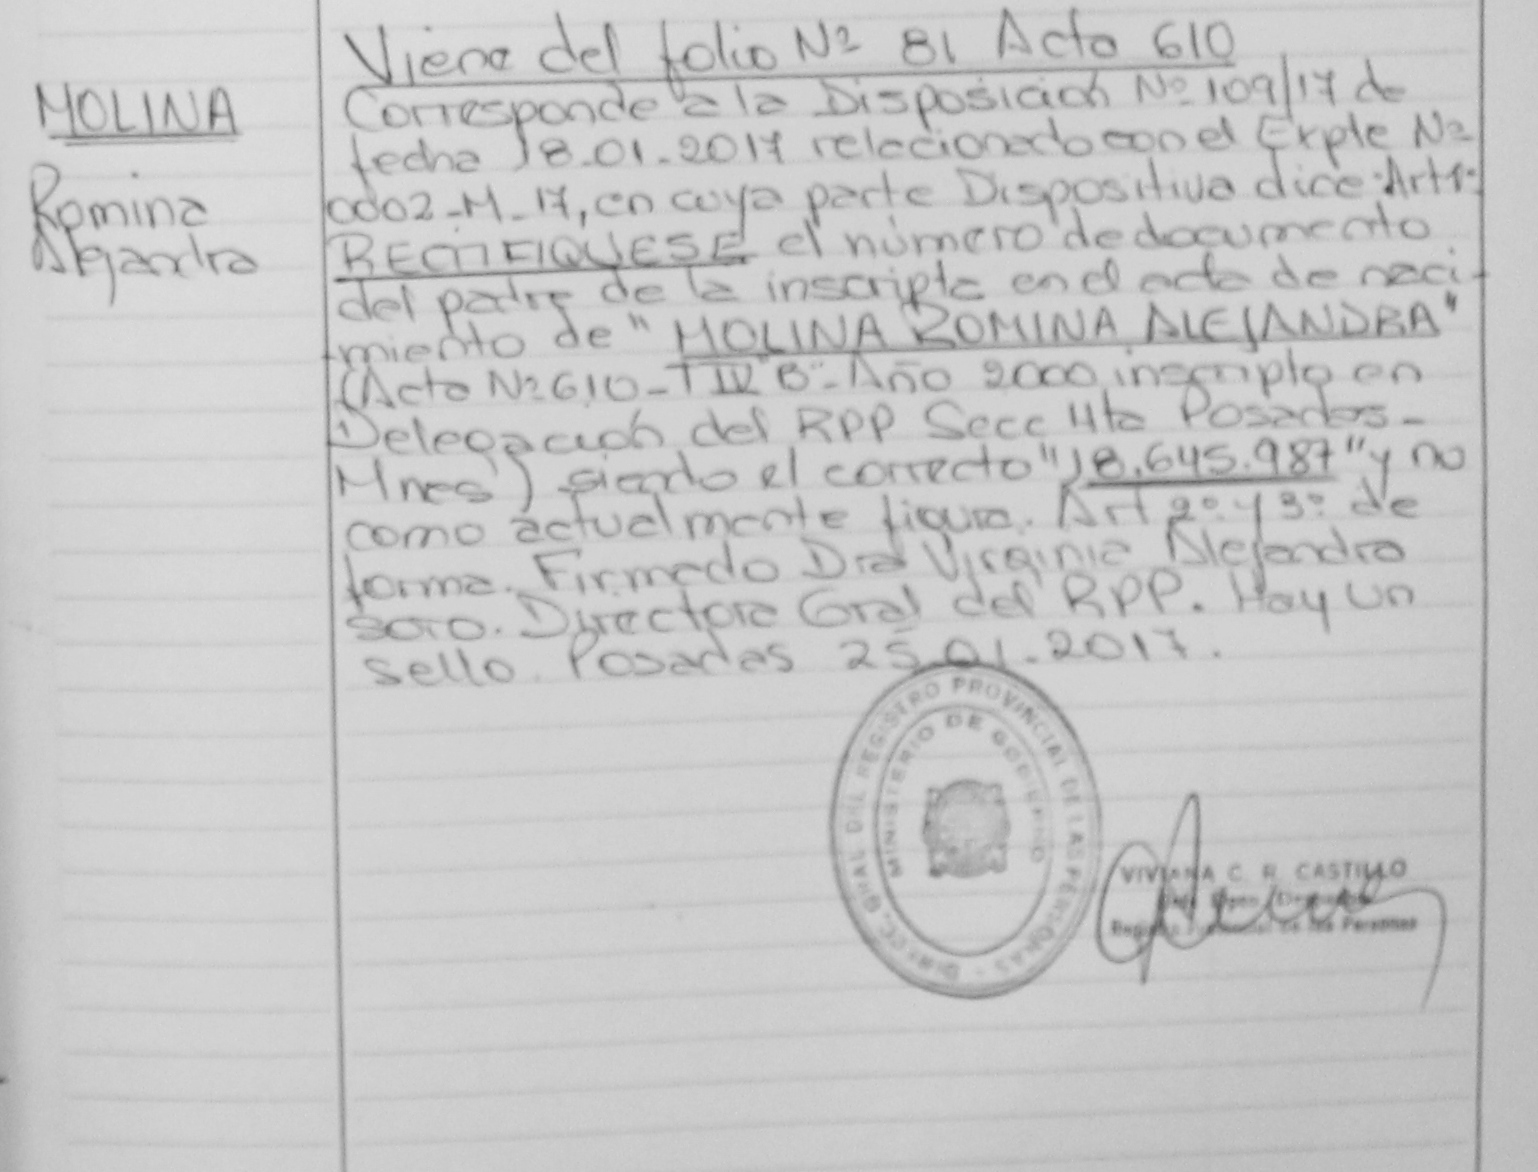 MOLINA
Romina
Alejandra
Viene del folio Nº 81 Acta 610
Corresponde a la Disposición Nº 109/17 de
fecha 18.01.2017 relacionado con el Expte Nº
0002-M-17, en cuya parte Dispositiva dice: Art 1º:
RECTIFIQUESE el número de documento
del padre de la inscripta en el acta de naci-
miento de "MOLINA ROMINA ALEJANDRA"
(Acta Nº 610-T IV B - Año 2000, inscripta en
Delegación del RPP Secc 4ta Posadas-
Mnes) siendo el correcto "18.645.987" y no
como actualmente figura. Art 2º y 3º de
forma. Firmado Dra Virginia Alejandra
Soto. Directora Gral del RPP. Hay un
sello. Posadas 25.01.2017.
DIRECC. GRAL DEL REGISTRO PROVINCIAL DE LAS PERSONAS -
MINISTERIO DE GOBIERNO
VIVIANA C. R. CASTILLO
de las Personas